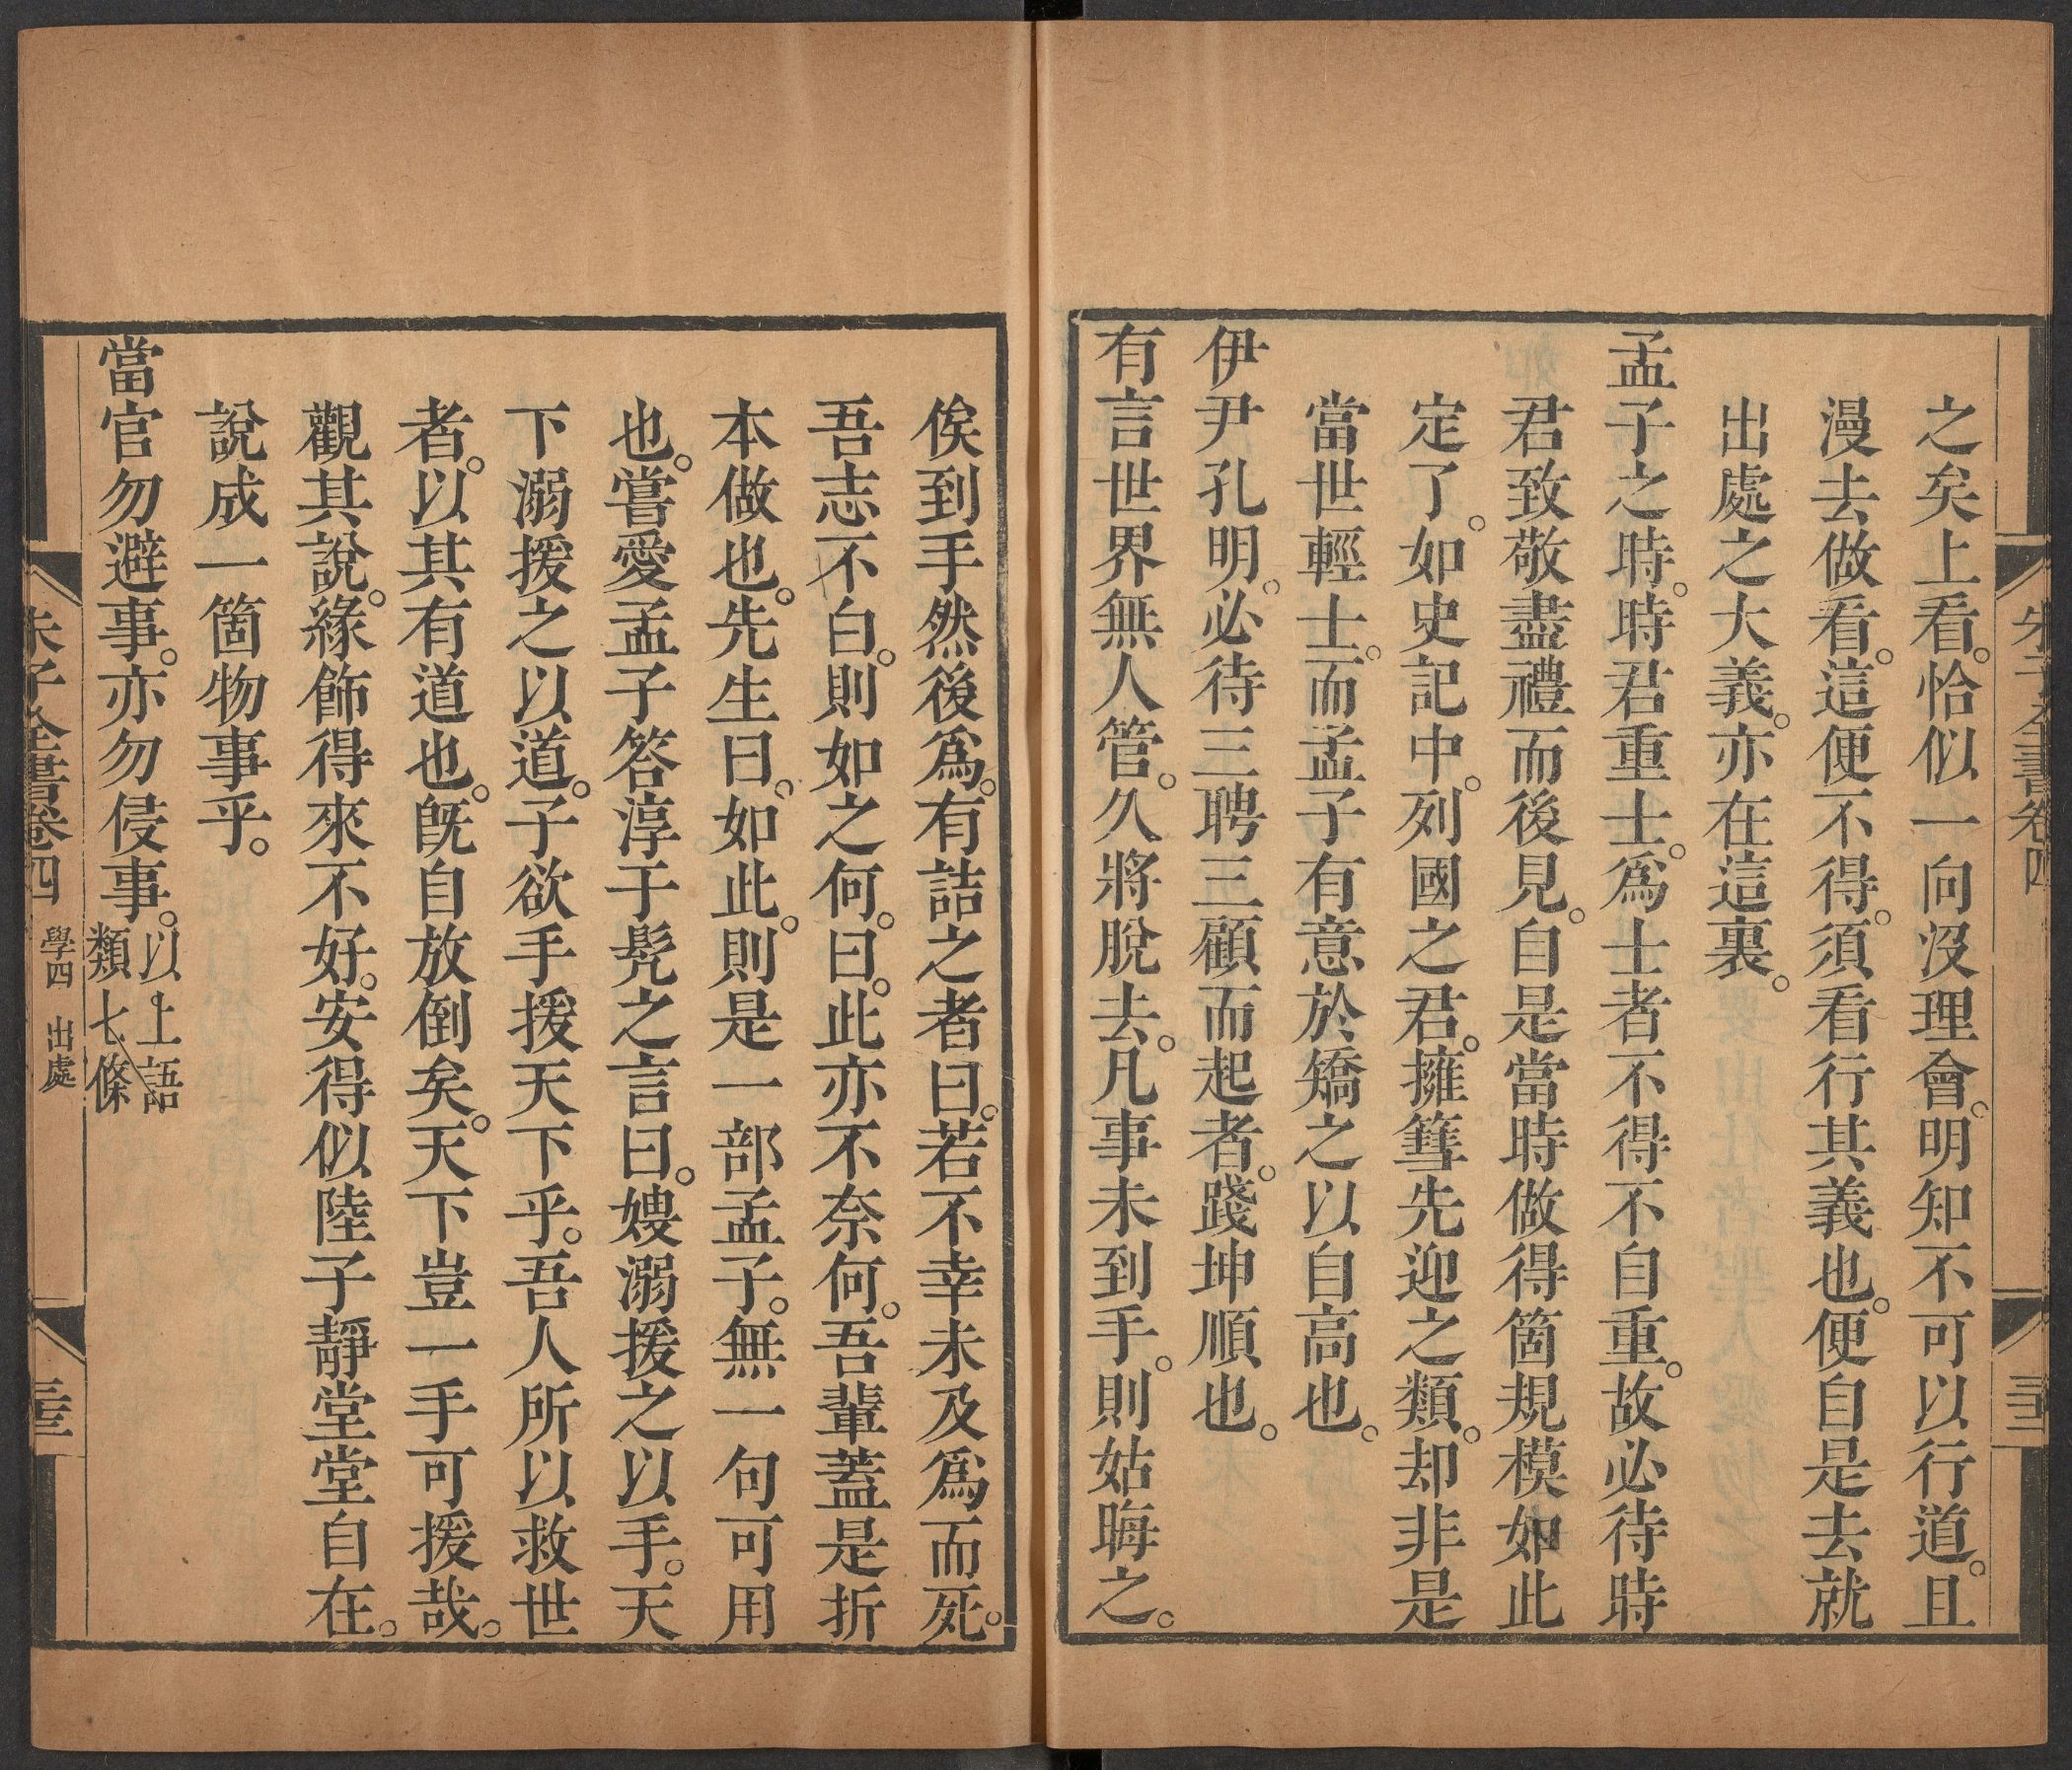 之矣上看。恰似一向沒理會。明知不可以行道。且
漫去做看。這便不得。須看行其義也。便自是去就
出處之大義。亦在這裏。
孟子之時。時君重士。爲士者不得不自重。故必待時
君致敬盡禮而後見。自是當時做得箇規模如此
定了。如史記中。列國之君。擁篲先迎之類。却非是
當世輕士。而孟子有意於矯之以自高也。
伊尹孔明。必待三聘三顧而起者。踐坤順也。
有言世界無人管。久將脫去。凡事未到手。則姑晦之。
俟到手然後爲。有詰之者曰。若不幸未及爲而死。
吾志不白。則如之何。曰。此亦不奈何。吾輩蓋是折
本做也。先生曰。如此。則是一部孟子。無一句可用
也。嘗愛孟子答淳于髡之言曰。嫂溺援之以手。天
下溺援之以道。子欲手援天下乎。吾人所以救世
者。以其有道也。旣自放倒矣。天下豈一手可援哉。
觀其說。緣飾得來不好。安得似陸子靜堂堂自在。
說成一箇物事乎。
當官勿避事。亦勿侵事。以上語
類七條
朱子全書卷四 學四 出處